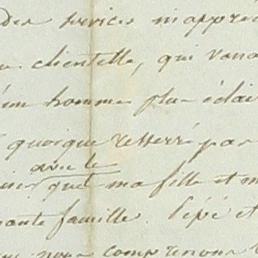 Des services inappré
clientelle, qui vena
un homme plus éclai
quoique resserré pas
avec le
que ma fille et m
famille. Pépé et
nous comprenons